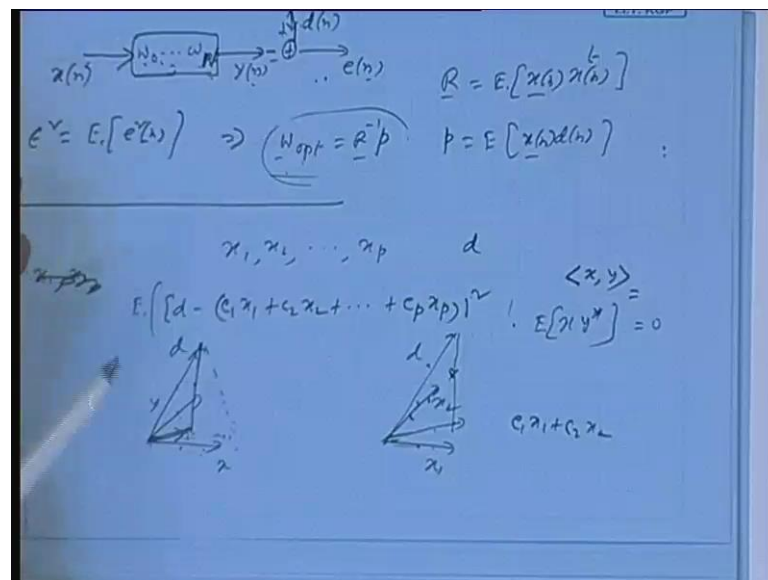 d(n)
x(n) w₀ ... w_N y(n) e(n)
R = E[x(n) xᵗ(n)]
ε² = E[e²(n)] ⇒ w_opt = R⁻¹p p = E[x(n)d(n)]
x₁, x₂, ..., x_p d
<x, y> =
E[{d - (c₁x₁ + c₂x₂ + ... + c_p x_p)}²] E[x y*] = 0
d d
y x₂ c₁x₁ + c₂x₂
x x₁